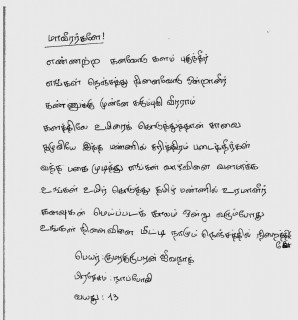 மாவீரர்களே!
எண்ணற்ற கனவோடு களம் புகுந்தீர்
எங்கள் நெஞ்சத்து நினைவோடு ஒன்றானீர்
கண்ணுக்கு முன்னே கரும்புலி வீரராய்
களத்திலே உயிரைக் கொடுத்துதான் சாவை
தழுவியே இந்த மண்ணில் சரித்திரம் படைத்தீர்கள்
வந்த பகை முடித்து எங்கள் வாழ்வினை வளமாக்க
உங்கள் உயிர் கொடுத்து தமிழ் மண்ணில் உரமானீர்
கனவுகள் மெய்ப்படக் காலம் ஒன்று வரும்போது
உங்களின் நினைவினை மீட்டி நாமும் நெஞ்சத்தில்
பெயர்:
பிரதேசம்:
வயது: 13